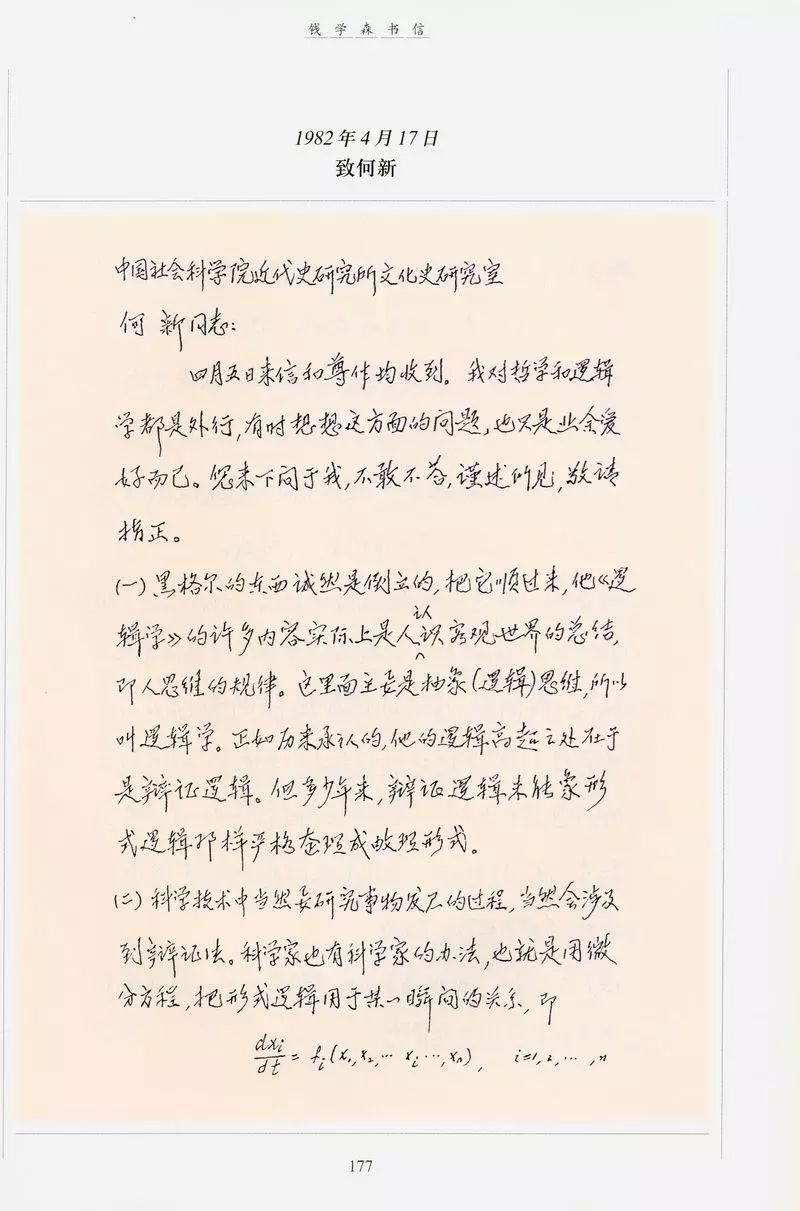 钱学森书信
1982年4月17日
致何新
中国社会科学院近代史研究所文化史研究室
何 新同志：
四月五日来信和尊作均收到。我对哲学和逻辑
学都是外行，有时想想这方面的问题，也只是业余爱
好而已。您来下问于我，不敢不答，谨述所见，敬请
指正。
(一)黑格尔的东西诚然是倒立的，把它顺过来，他《逻
辑学》的许多内容实际上是人认识客观世界的总结，
即人思维的规律。这里面主要是抽象(逻辑)思维，所以
叫逻辑学。正如历来承认的，他的逻辑高超之处在于
是辩证逻辑。但多少年来，辩证逻辑未能象形
式逻辑那样严格整理成数理形式。
(二)科学技术中当然要研究事物发展的过程，当然会涉及
到辩证法。科学家也有科学家的办法，也就是用微
分方程，把形式逻辑用于某一瞬间的关系，即
dxi/dt = fi(x1,x2,…xi…,xn), i=1,2,…,n
177